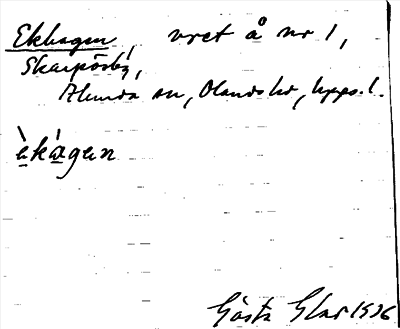 Ekhagen, vret å nr 1,
Skarpörby,
Alunda sn, Olands hd, Upps. l.
èkàgen
Gösta Elar 1936